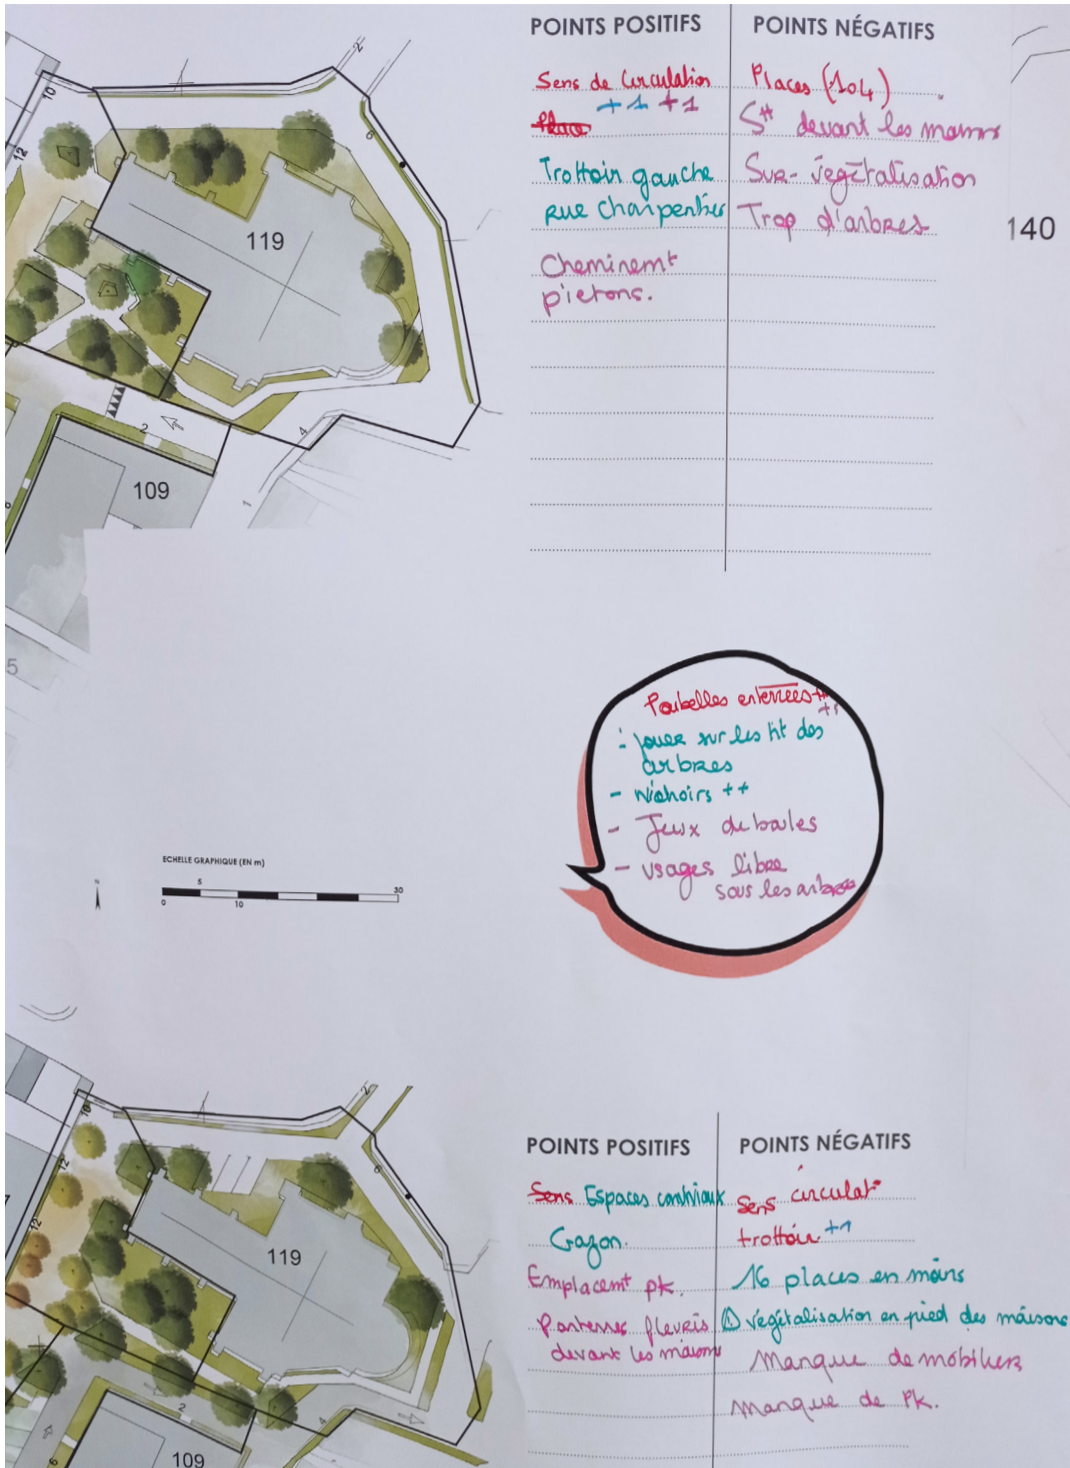 POINTS POSITIFS
POINTS NÉGATIFS
Sens de Circulation
+1 +1
Trottoir gauche
Rue Charpentier
Cheminemt
piétons.
Places (104)
St devant les maisons
Sur-végétalisation
Trop d'arbres
140
10
12
2
6
119
2
4
1
109
5
Poubelles enterrées ++
+1
- jouer sur les ht des
arbres
- Nichoirs ++
- Jeux de boules
- usages libre
sous les arbres
ECHELLE GRAPHIQUE (EN m)
5
30
0
10
N
POINTS POSITIFS
POINTS NÉGATIFS
Sens Espaces conviviaux
Gazon.
Emplacemt pk.
Parterres fleuris
devant les maisons
Sens circulat°
trottoir +1
16 places en moins
végétalisation en pied des maisons
Manque de mobiliers
Manque de Pk.
10
12
12
2
6
119
2
4
6
109